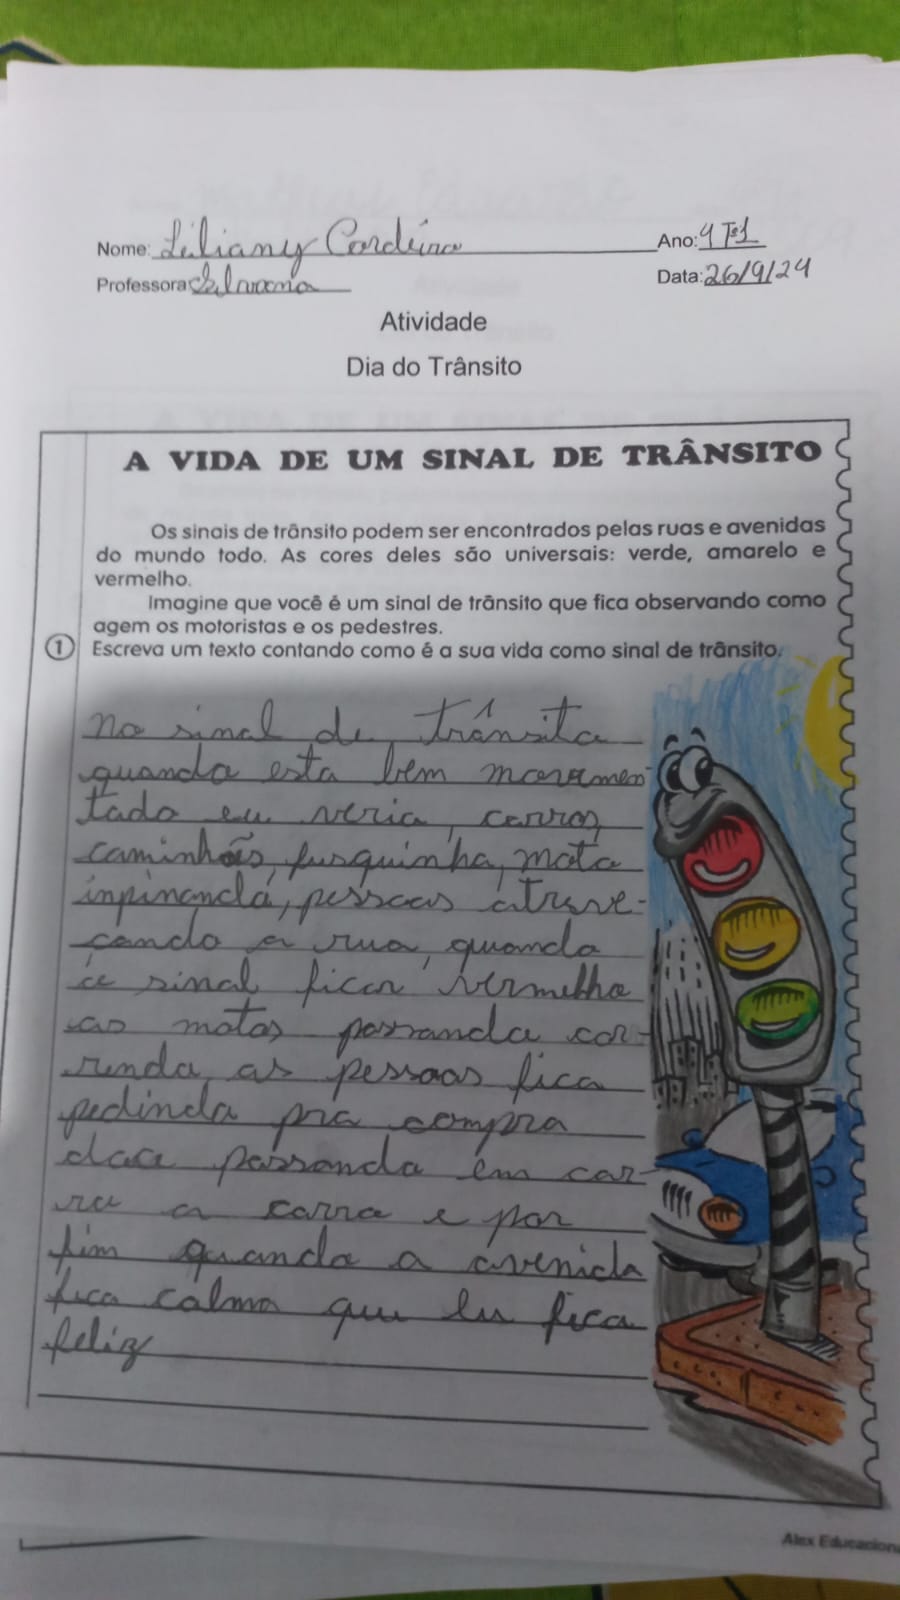 Nome: Liliany Cordeiro Ano: 4 T:1
Professora: Silvana Data: 26/9/24
Atividade
Dia do Trânsito
A VIDA DE UM SINAL DE TRÂNSITO
Os sinais de trânsito podem ser encontrados pelas ruas e avenidas
do mundo todo. As cores deles são universais: verde, amarelo e
vermelho.
Imagine que você é um sinal de trânsito que fica observando como
agem os motoristas e os pedestres.
1 Escreva um texto contando como é a sua vida como sinal de trânsito.
no sinal de trânsito
quando esta bem movimen
tado eu veria, carros,
caminhões, fusquinha, moto
inpinando, pessoas atrave-
çando a rua, quando
o sinal ficar vermelho
as motos passando cor-
rendo, as pessoas fica
pedindo pra compra
doce passando em car-
ro a carro e por
fim quando a avenida
fica calma que eu fico
feliz
Alex Educaciona